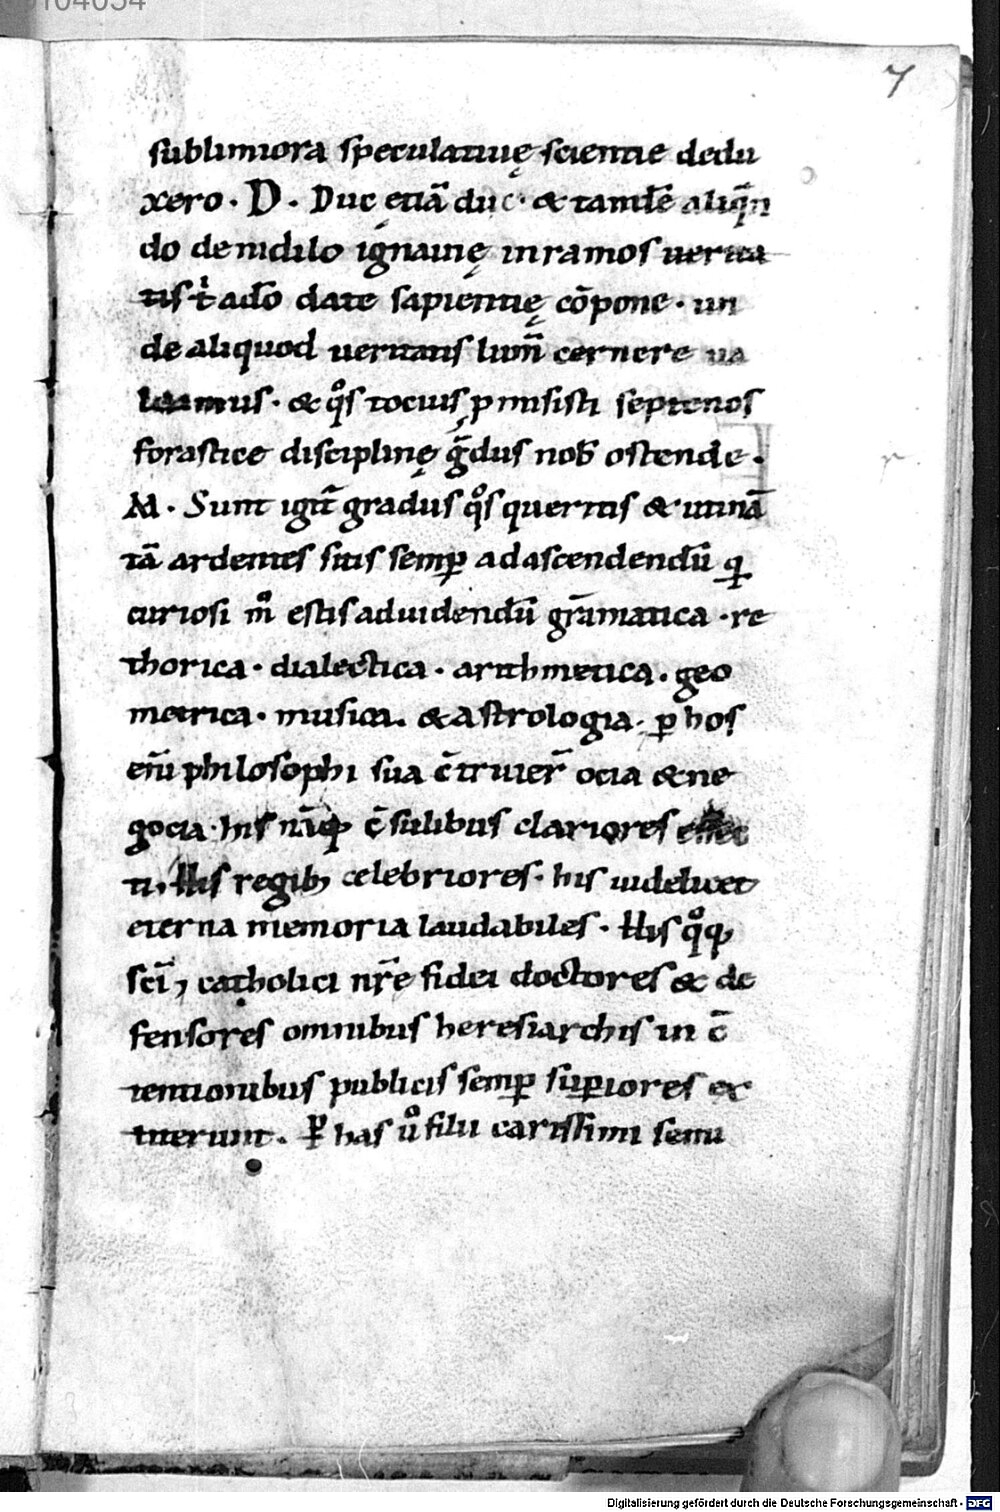 7
sublimiora speculatiuę scientie dedu
xero · D · Duc etiã duc · & tandẽ aliqñ
do de nidilo ignauię in ramos uerita
tis t̾ a dõ date sapientię cõpone · un
de aliquod ueritatis lum̃ cernere ua
leamus · & qͦs tociis p misisti septenos
forastice disciplinę g̃dus nob̃ ostende ·
M · Sunt igit̃ gradus qͦs queritis & utinã
tã ardentes sitis semꝑ ad ascendendũ q
curiosi m̊ estis ad uidendũ grãmatica · re
thorica · dialectica · arithmetica · geo
metrica · musica · & astrologia · ꝑ hos
eni̅ philosophi sua c̃triuer̃ ocia & ne
gocia · his nãq; c̃sulibus clariores effec
ti, His regib; celebriores · his uidelicet
eterna memoria laudabiles · His qͦq;
sci̅, catholici nr̃e fidei doctores & de
fensores omnibus heresiarchis in c̃
tentionibus publicis semꝑ suꝑiores ex
titerunt · ꝑ has uͦ filii carissimi semi
Digitalisierung gefördert durch die Deutsche Forschungsgemeinschaft - DFG